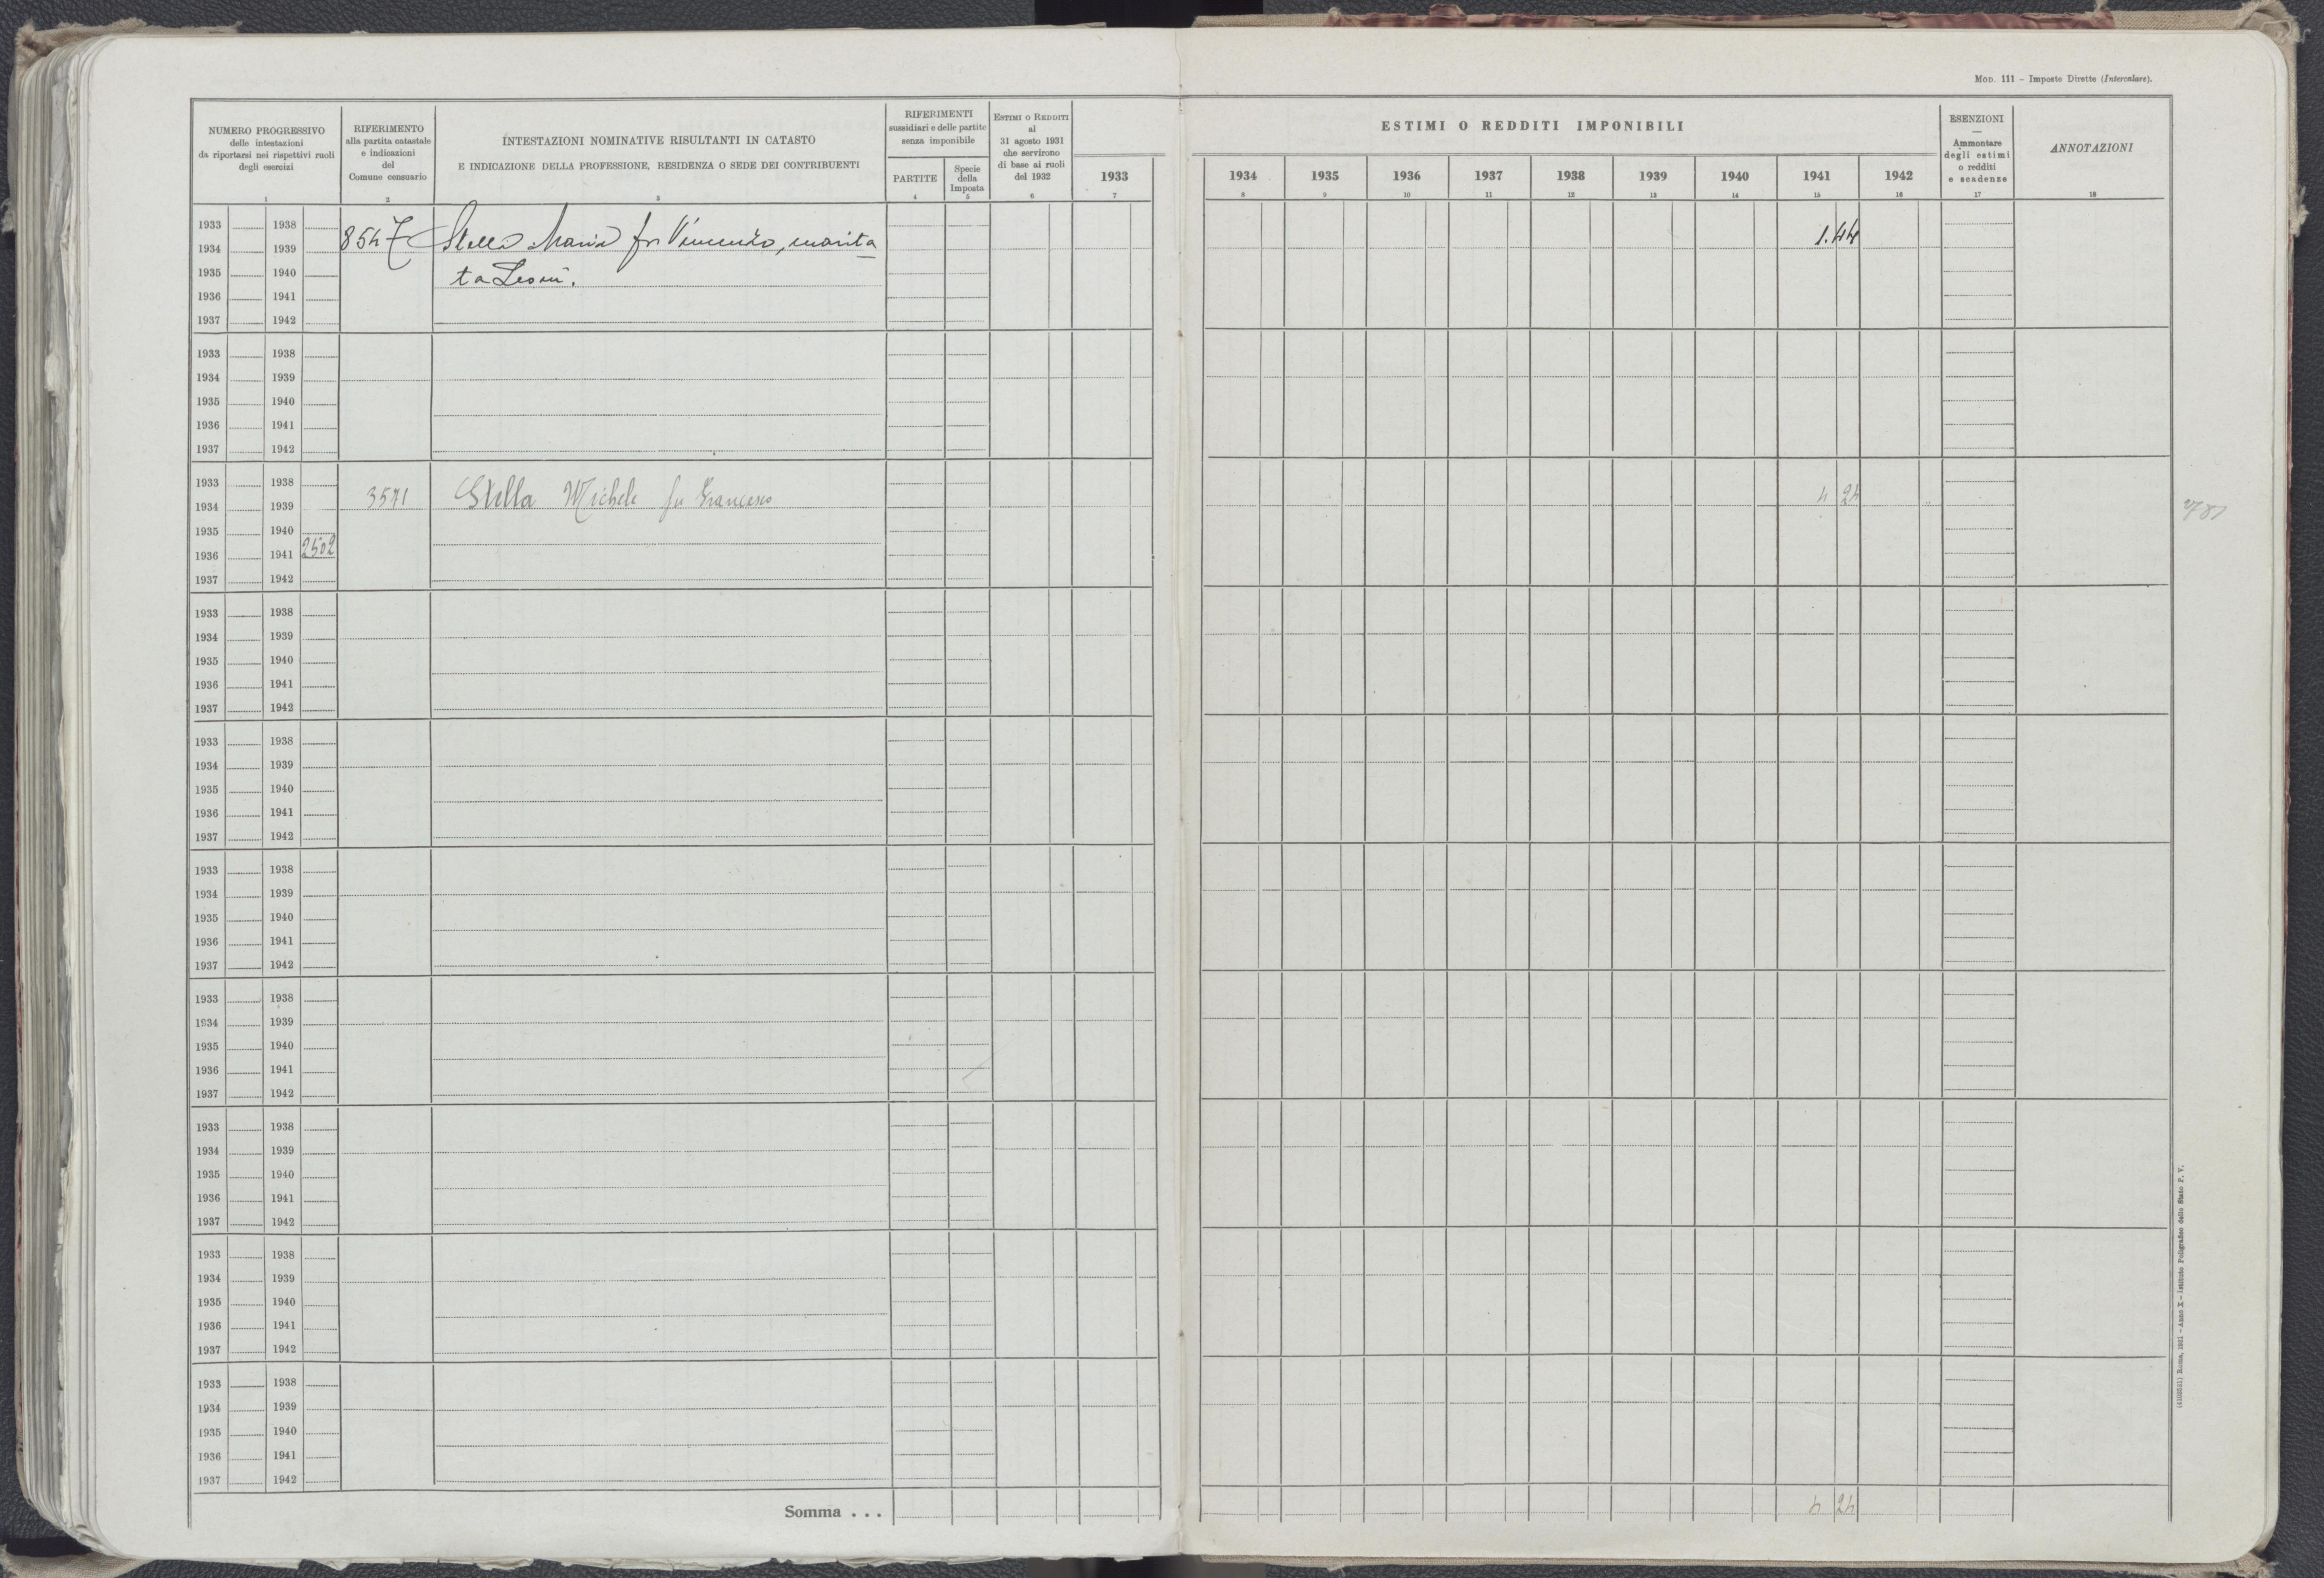 MOD. 111 - Imposte Dirette (Intercalare).
NUMERO PROGRESSIVO
delle intestazioni
da riportarsi nei rispettivi ruoli
degli esercizi
1
RIFERIMENTO
alla partita catastale
e indicazioni
del
Comune censuario
2
INTESTAZIONI NOMINATIVE RISULTANTI IN CATASTO
E INDICAZIONE DELLA PROFESSIONE, RESIDENZA O SEDE DEI CONTRIBUENTI
3
RIFERIMENTI
sussidiari e delle partite
senza imponibile
PARTITE
4
Specie
della
Imposta
5
ESTIMI O REDDITI
al
31 agosto 1931
che servirono
di base ai ruoli
del 1932
6
1933
7
ESTIMI O REDDITI IMPONIBILI
1934 1935 1936 1937 1938 1939 1940 1941 1942
8 9 10 11 12 13 14 15 16
ESENZIONI
—
Ammontare
degli estimi
o redditi
e scadenze
17
ANNOTAZIONI
18
1933 1938
1934 1939 8547 Stella Maria fu Vincenzo, marita 1.44
1935 1940 ta Leoni.
1936 1941
1937 1942
1933 1938
1934 1939
1935 1940
1936 1941
1937 1942
1933 1938
1934 1939 3571 Stella Michele fu Francesco 4 24
1935 1940
1936 1941 2502
1937 1942
1933 1938
1934 1939
1935 1940
1936 1941
1937 1942
1933 1938
1934 1939
1935 1940
1936 1941
1937 1942
1933 1938
1934 1939
1935 1940
1936 1941
1937 1942
1933 1938
1934 1939
1935 1940
1936 1941
1937 1942
1933 1938
1934 1939
1935 1940
1936 1941
1937 1942
1933 1938
1934 1939
1935 1940
1936 1941
1937 1942
1933 1938
1934 1939
1935 1940
1936 1941
1937 1942
Somma . . . 4 24
Roma, 1931 - Anno X - Istituto Poligrafico dello Stato P. V.